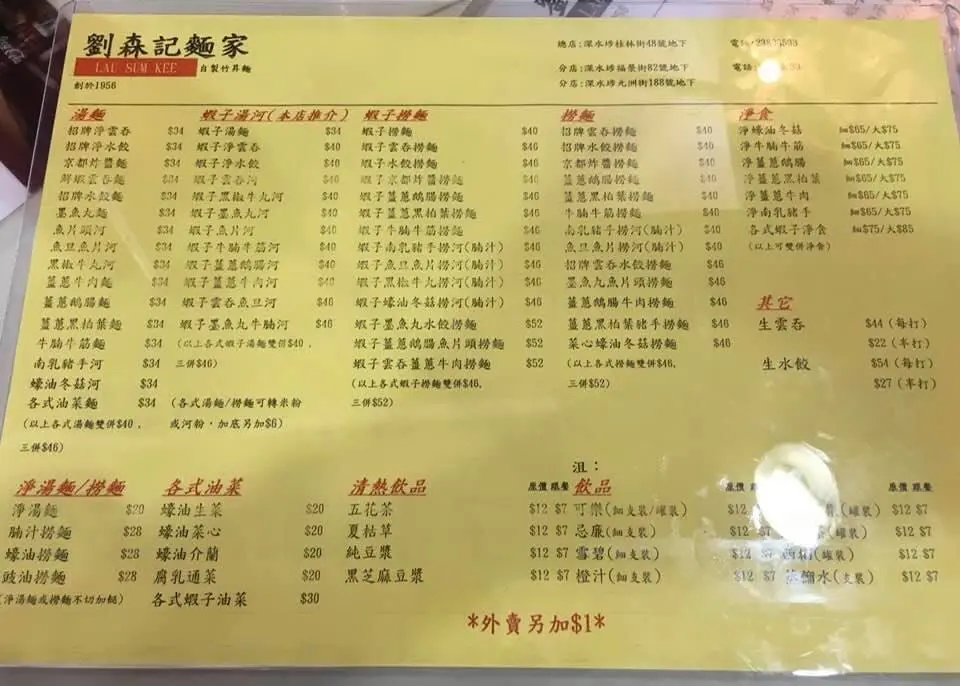 劉森記麵家
LAU SUM KEE 自製竹昇麵
創於1956
總店:深水埗桂林街48號地下
電話:
分店:深水埗福榮街82號地下
電話:
分店:深水埗元洲街188號地下
湯麵
招牌淨雲吞 $34
招牌淨水餃 $34
京都炸醬麵 $34
鮮蝦雲吞麵 $34
招牌水餃麵 $34
墨魚丸麵 $34
魚片頭河 $34
魚旦魚片河 $34
黑椒牛丸河 $34
薑蔥牛肉麵 $34
薑蔥鵝腸麵 $34
薑蔥黑柏葉麵 $34
牛腩牛筋麵 $34
南乳豬手河 $34
蠔油冬菇河 $34
各式油菜麵 $34
(以上各式湯麵雙併$40,
三併$46)
蝦子湯河(本店推介)
蝦子湯麵 $34
蝦子淨雲吞 $40
蝦子淨水餃 $40
蝦子雲吞河 $40
蝦子黑椒牛丸河 $40
蝦子墨魚丸河 $40
蝦子魚片河 $40
蝦子牛腩牛筋河 $40
蝦子薑蔥鵝腸河 $40
蝦子薑蔥牛肉河 $40
蝦子雲吞魚旦河 $40
蝦子墨魚丸牛腩河 $46
(以上各式蝦子湯麵雙併$40,
三併$46)
(各式湯麵/撈麵可轉米粉
或河粉,加底另加$6)
蝦子撈麵
蝦子撈麵 $40
蝦子雲吞撈麵 $40
蝦子水餃撈麵 $40
蝦子京都炸醬撈麵 $40
蝦子薑蔥鵝腸撈麵 $46
蝦子薑蔥黑柏葉撈麵 $46
蝦子牛腩牛筋撈麵 $46
蝦子南乳豬手撈河(腩汁) $46
蝦子魚旦魚片撈河(腩汁) $46
蝦子黑椒牛丸撈河(腩汁) $46
蝦子蠔油冬菇撈河(腩汁) $46
蝦子墨魚丸水餃撈麵 $52
蝦子薑蔥鵝腸魚片頭撈麵 $52
蝦子雲吞薑蔥牛肉撈麵 $52
(以上各式蝦子撈麵雙併$46,
三併$52)
撈麵
招牌雲吞撈麵 $40
招牌水餃撈麵 $40
京都炸醬撈麵 $40
薑蔥鵝腸撈麵 $40
薑蔥黑柏葉撈麵 $40
牛腩牛筋撈麵 $40
南乳豬手撈河(腩汁) $40
魚旦魚片撈河(腩汁) $40
招牌雲吞水餃撈麵 $46
墨魚丸魚片頭撈麵 $46
薑蔥鵝腸牛肉撈麵 $46
薑蔥黑柏葉豬手撈麵 $46
菜心蠔油冬菇撈麵 $46
(以上各式撈麵雙併$46,
三併$52)
淨食
淨蠔油冬菇 細$65/大$75
淨牛腩牛筋 細$65/大$75
淨薑蔥鵝腸 細$65/大$75
淨薑蔥黑柏葉 細$65/大$75
淨薑蔥牛肉 細$65/大$75
淨南乳豬手 細$65/大$75
各式蝦子淨食 細$75/大$85
(以上可雙併淨食)
其它
生雲吞 $44 (每打)
$22 (半打)
生水餃 $54 (每打)
$27 (半打)
淨湯麵/撈麵
淨湯麵 $20
腩汁撈麵 $28
蠔油撈麵 $28
豉油撈麵 $28
(淨湯麵或撈麵不切加餸)
各式油菜
蠔油生菜 $20
蠔油菜心 $20
蠔油介蘭 $20
腐乳通菜 $20
各式蝦子油菜 $30
清熱飲品
原價 跟餐
五花茶 $12 $7
夏枯草 $12 $7
純豆漿 $12 $7
黑芝麻豆漿 $12 $7
沮:
飲品
原價 跟餐
可樂(細支裝/罐裝) $12
忌廉(細支裝) $12 $7
雪碧(細支裝) $12 $7
橙汁(細支裝) $12 $7
跟餐
(罐裝) $12 $7
(罐裝) $12 $7
(罐裝) $12 $7
蒸餾水(支裝) $12 $7
*外賣另加$1*